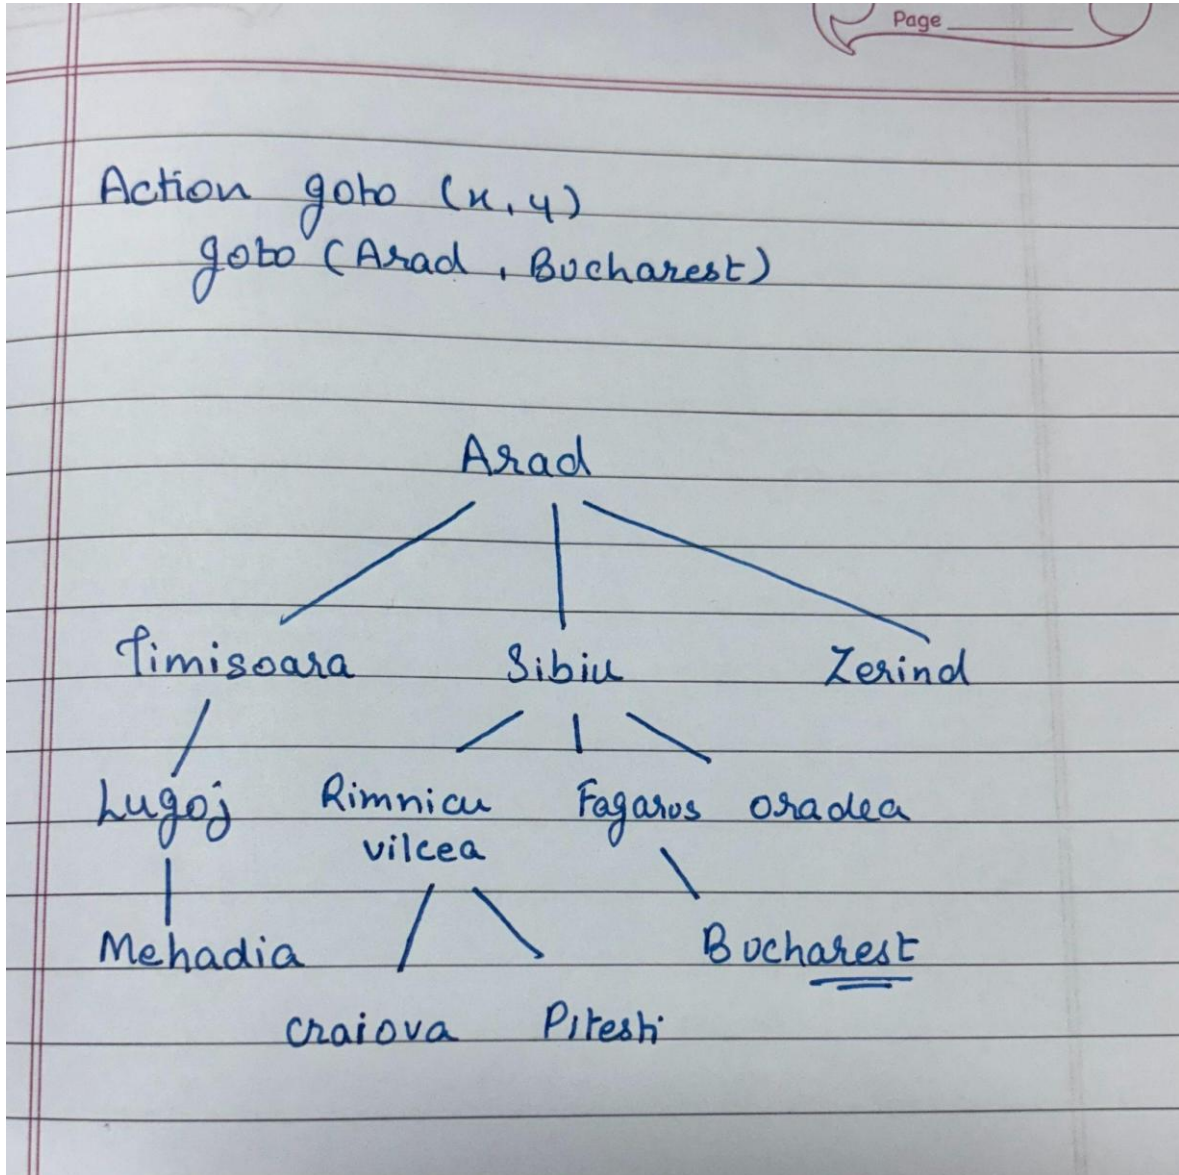 Page
Action goto (x, y)
goto (Arad, Bucharest)
Arad
Timisoara Sibiu Zerind
Lugoj Rimnicu Fagaros oradea
vilcea
Mehadia Bucharest
craiova Pitesti